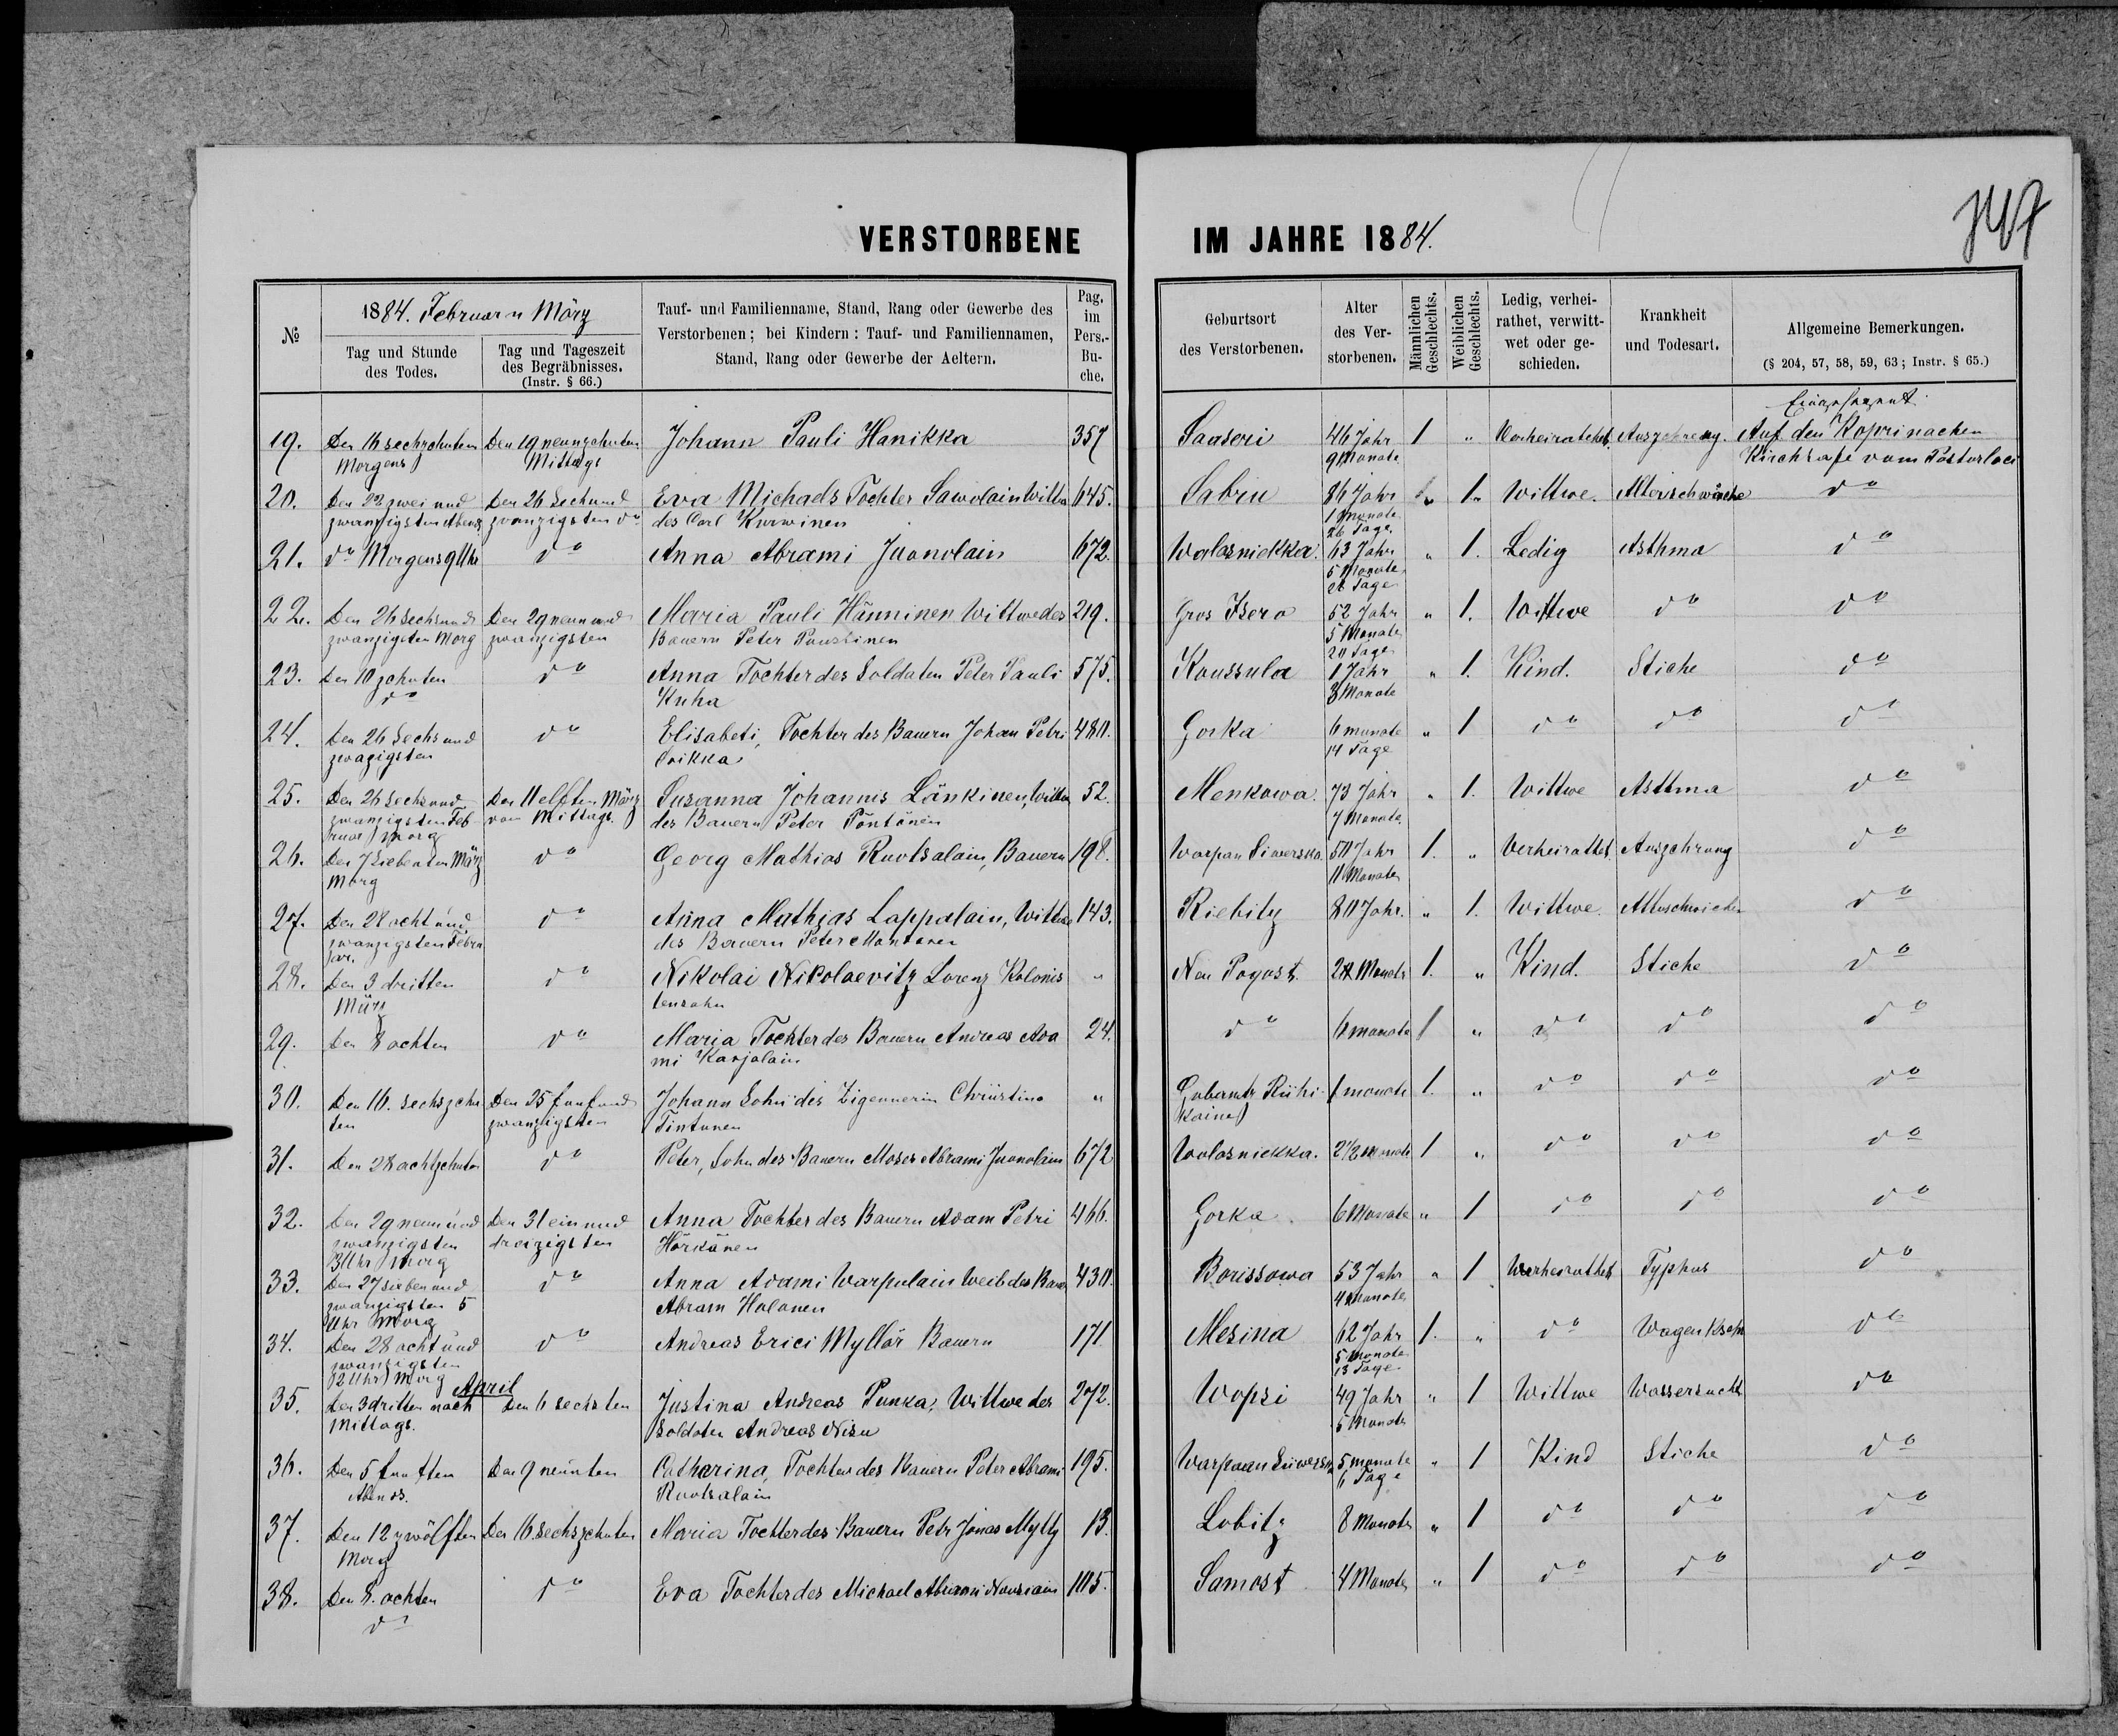 VERSTORBENE IM JAHRE 1884.
№
1884. Februar u März
Tag und Stunde des Todes.
Tag und Tageszeit des Begräbnisses. (Instr. § 66.)
Tauf- und Familienname, Stand, Rang oder Gewerbe des Verstorbenen; bei Kindern: Tauf- und Familiennamen, Stand, Rang oder Gewerbe der Aeltern.
Pag. im Pers.-Bu-che.
Geburtsort des Verstorbenen.
Alter des Ver-storbenen.
Männlichen Geschlechts.
Weiblichen Geschlechts.
Ledig, verhei-rathet, verwitt-wet oder ge-schieden.
Krankheit und Todesart.
Allgemeine Bemerkungen.
(§ 204, 57, 58, 59, 63; Instr. § 65.)
19. Den 16 sechzehnten Morgens Den 19 neunzehnten Mittags Johann Pauli Hanikka 357 Saaseri 46 Jahr 9 Monate 1 " Verheirathet Auszehrung. Auf den Koprinachen Kirchhofe vom Pastorloci
20. Den 22 zwei und zwanzigsten Abens Den 26 Sechund zwanzigsten do Eva Michaels Tochter Sawolain Wittwe des Carl Kurwinen 645. Sabru 86 Jahr 1 monate 26 Tage " 1. Wittwe. Alterschwäche do
21. do Morgens 9 Uhr do Anna Abrami Juonolain 672. Wolosnickka. 63 Jahr 5 Monate Tage " 1. Ledig Asthma do
22. Den 26 sechsund zwanzigsten Morg Den 29 neunund zwanzigsten Maria Pauli Hänninen Wittwe des Bauern Peter Paustinen 219. Gros Isero 52 Jahr 5 Monate 20 Tage " 1. Wittwe do do
23. Den 10 zehnten do do Anna Tochter des Soldaten Peter Pauli Kuha 575. Koussula 1 Jahr 3 Monate " 1. Kind. Stiche do
24. Den 26 Sechs und zwazigsten do Elisabeti, Tochter des Bauern Johan Petri Orikka 480. Gorka 6 monate 14 Tage " 1 do do do
25. Den 26 sechsund zwanzigsten Februar Morg Den 11 elften März vom Mittags. Susanna Johannis Länkinen, Wittwe des Bauern Peter Pöntönen 52. Menkowa. 73 Jahr 7 Monate " 1. Wittwe Asthma do
26. Den 7 Siebenten März Morg do Georg Mathias Ruotsalain, Bauern 198. Warpan Siwerska. 50 Jahr 11 Monate 1. " Verheirathet Auszehrung do
27. Den 28 acht und zwanzigsten Februar. do Anna Mathias Lappalain, Wittwe des Bauern Peter Montonen 143. Riebitz 80 Jahr. " 1. Wittwe. do
28. Den 3 dritten März do Nikolai Nikolaevitz Lorenz Kolonistensohn " Neu Pogost. Monate 1. " Kind. Stiche do
29. Den 8 achten do Maria Tochter des Bauern Andreas Adami Karjalain 24. do 6 monate 1 " do do do
30. Den 16. sechszehnten Den 25 funfund zwanzigsten Johann Sohn des Zigeunerin Christina Tintunen " Gubanitz Riihikaine 1 monate 1. " do do do
31. Den 28 achtzehnten do Peter, Sohn des Bauern Moses Abrami Juonolain 672 Wolosnickka. 2 1/2 Monate 1 " do do do
32. Den 29 neun und zwanzigsten 3 Uhr Morg Den 31 ein und dreizigsten Anna Tochter des Bauern Adam Petri Hörkänen 466. Gorka 6 Monate " 1 do do do
33. Den 27 sieben und zwanzigsten 5 Uhr Morg do Anna Adami Warpulain Weib des Bauer Abram Holonen 430. Borissowa 53 Jahr 4 Monate " 1 Verheirathet Typhus do
34. Den 28 acht und zwanzigsten 12 Uhr Morg do Andreas Erici Myllär Bauern 171 Mesina 62 Jahr 5 Monate 13 Tage 1. " do do
April
35. Den 3 dritten nach Mittags. Den 6 sechsten Justina Andreas Punka, Wittwe des Soldaten Andreas Nisu 272. Wopsi 49 Jahr 5 Monate " 1 Wittwe Wassersucht do
36. Den 5 funften Abends. Den 9 neunten Catharina, Tochter des Bauern Peter Abrami Ruotsalain 195. Warpaan Siwerska 5 monate 6 Tage " 1 Kind Stiche do
37. Den 12 zwölften Morg Den 16 Sechszehnten Maria Tochter des Bauern Petr Jonas Mylly 13. Lobitz 8 Monate " 1 do do do
38. Den 8. achten do do Eva Tochter des Michael Abrami Nousiain 105. Samost 4 Monate " 1 do do do